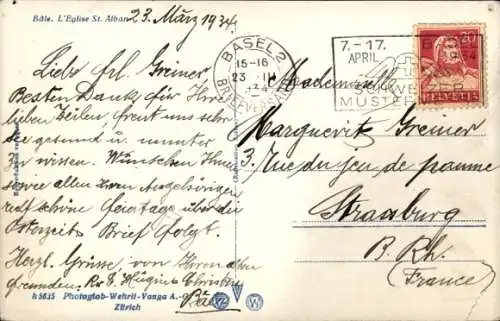 Bâle. L'Eglise St. Alban
23. März 1934.
Liebe Frl. Greiner
Besten Dank für Ihre
lieben Zeilen, freut uns sehr
sie gesund u. munter
zu wissen. Wünschen Ihnen
sowie allen Ihren Angehörigen
recht schöne Feiertage über die
Osterzeit. Brief folgt.
Herzl. Grüsse von Ihren alten
Freunden. Hügin Christen
Bâle
k 5615 Photoglob-Wehrli-Vouga A.-G.
Zürich
BASEL 2
15-16
23. III
34
BRIEFVERSAND
7.-17.
APRIL
BASEL
1934
SCHWEIZER
MUSTER
20
HELVETIA
Mademoiselle
Marguerit Greiner
3, Rue du jeu de paume
Strassburg
B. Rh.
(France)